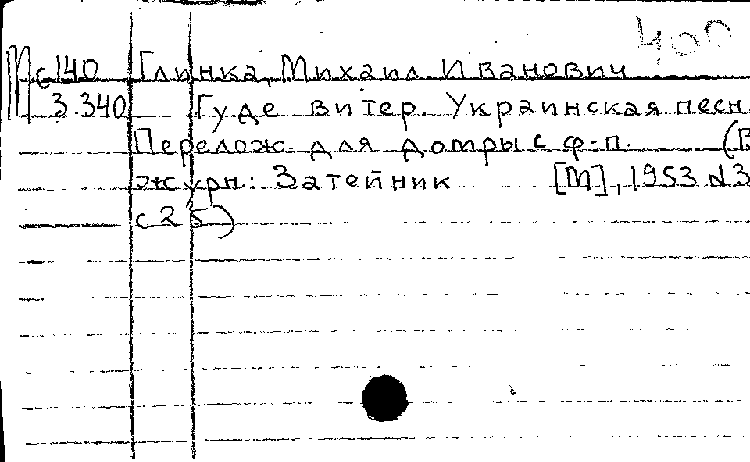 400
Мс140 Глинка, Михаил Иванович
3.340 Гуде витер. Украинская песн.
Перелож. для домры с ф-п. (В
журн: Затейник [М], 1953 №3
с 25)